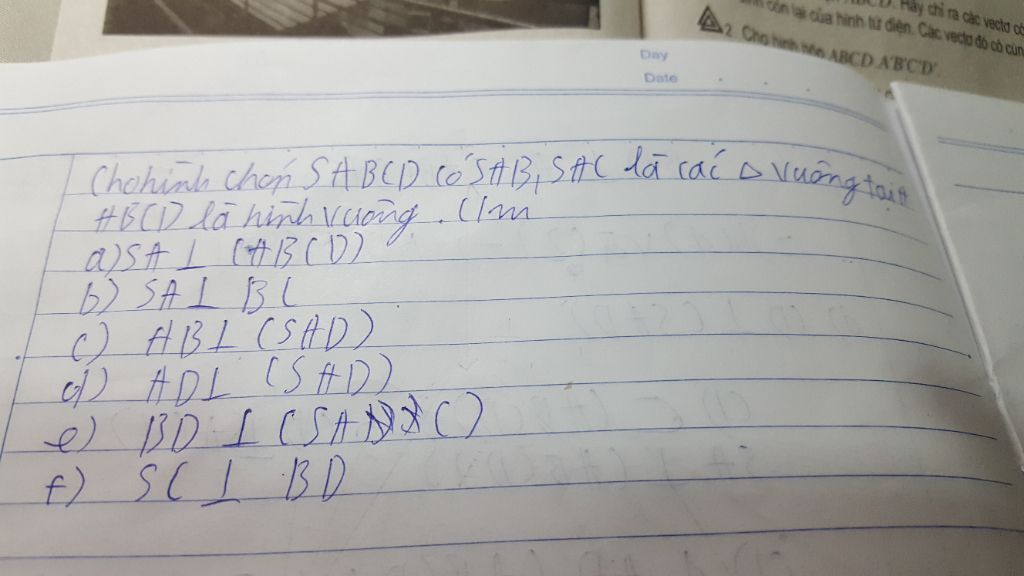 ABCD. Hãy chỉ ra các vectơ có
còn lại của hình tứ diện. Các vectơ đó có cùn
2 Cho hình hộp ABCD.A'B'C'D'.
Day
Date
Cho hình chóp SABCD có SAB, SAC là các Δ vuông tại A
ABCD là hình vuông. C/m
a) SA ⊥ (ABCD)
b) SA ⊥ BC
c) AB ⊥ (SAD)
d) AD ⊥ (SAD)
e) BD ⊥ (SAC)
f) SC ⊥ BD